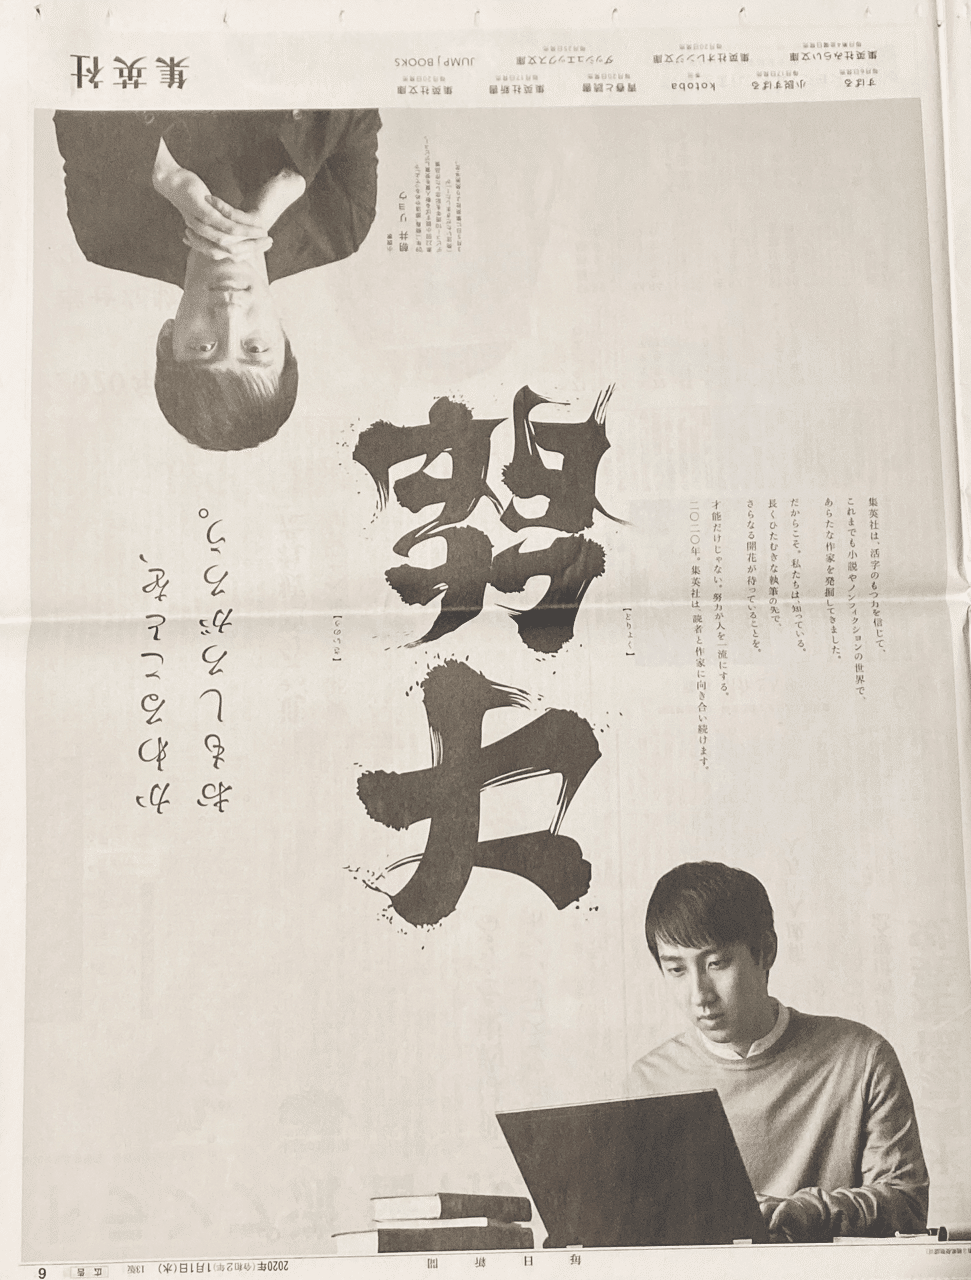 集英社は、活字のもつ力を信じて、
これまでも小説やノンフィクションの世界で、
あらたな作家を発掘してきました。
だからこそ。私たちは、知っている。
長くひたむきな執筆の先で、
さらなる開花が待っていることを。
才能だけじゃない。努力が人を一流にする。
二〇二〇年。集英社は、読者と作家に向き合い続けます。
努力
【どりょく】
【さいのう】
かわることを、
おもしろがろう。
小説家
朝井リョウ
すばる
小説すばる
kotoba
青春と読書
集英社新書
集英社文庫
集英社みらい文庫
集英社オレンジ文庫
ダッシュエックス文庫
JUMP j BOOKS
集英社
毎日新聞
2020年(令和2年)1月1日(水)
13版
広告